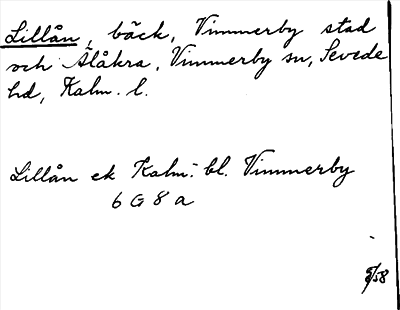 Lillån, bäck, Vimmerby stad
och Ålåkra, Vimmerby sn, Sevede
hd, Kalm. l.
Lillån ek Kalm. bl. Vimmerby
6 G 8 a
/58